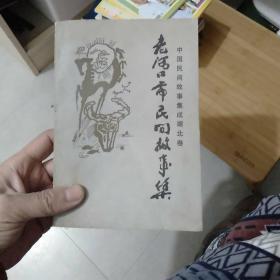 中国民间故事集成湖北卷
老河口市民间故事集